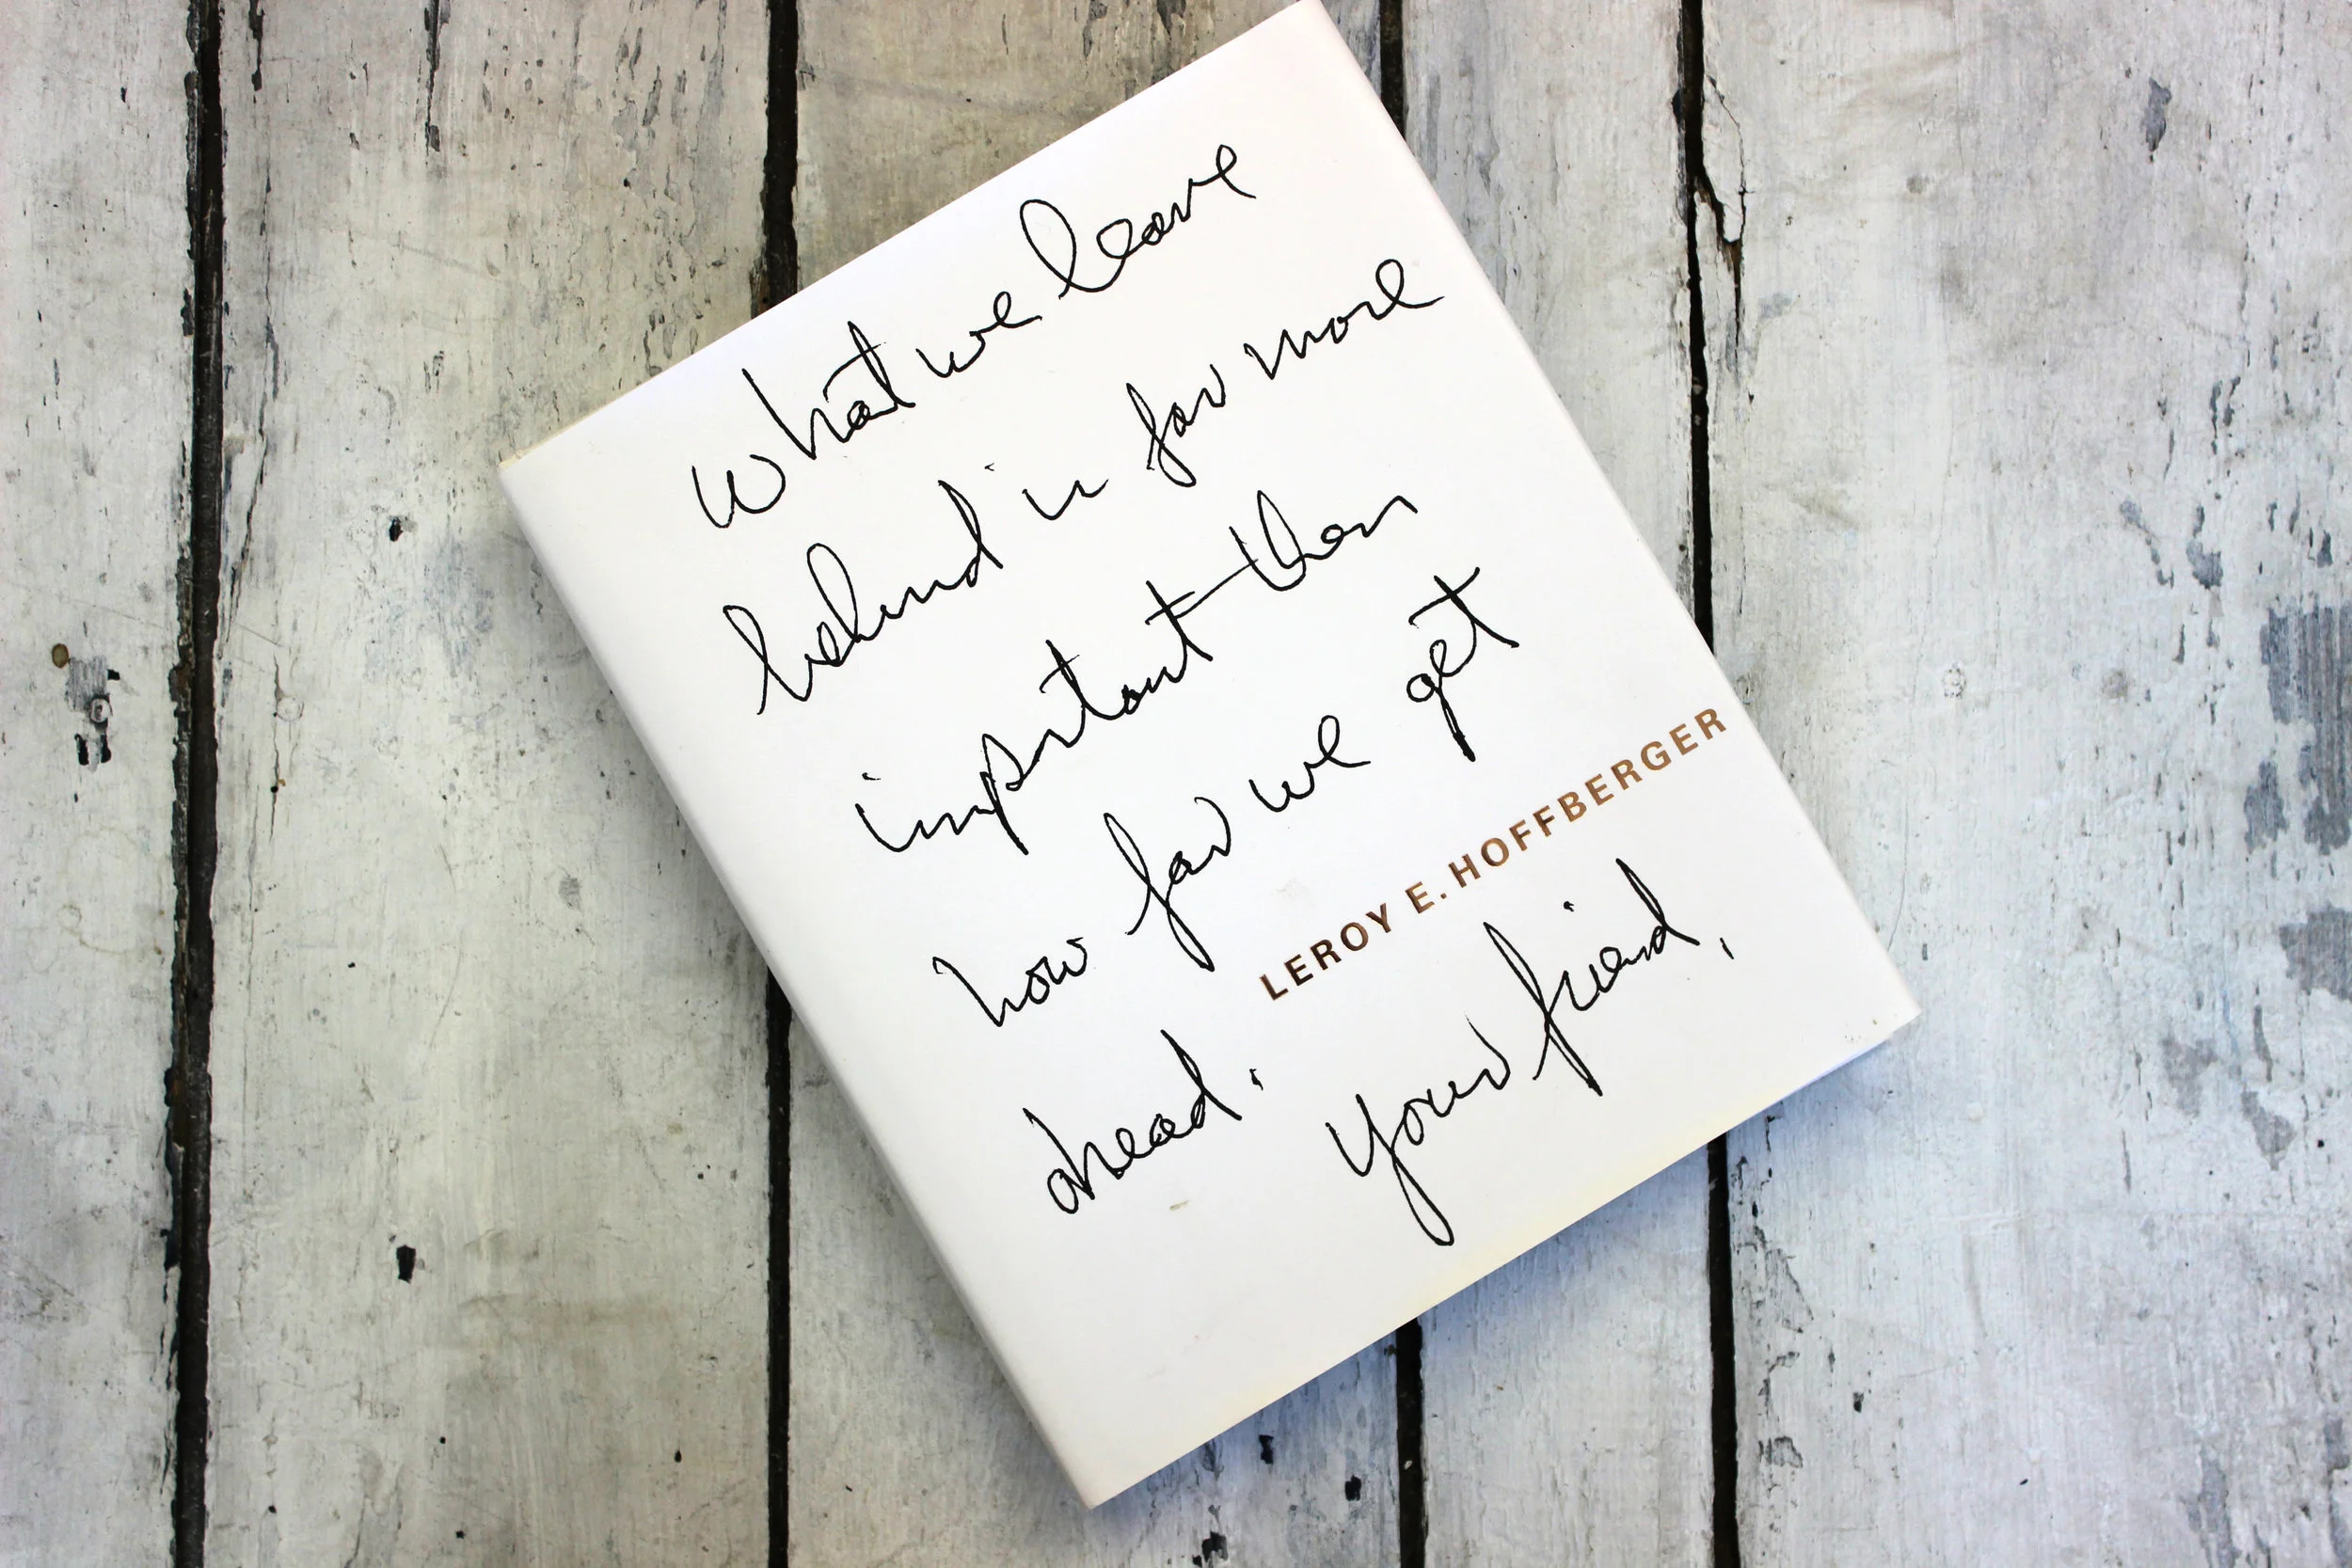 What we leave
behind is far more
important than
how far we get
ahead.
LEROY E. HOFFBERGER
Your friend,